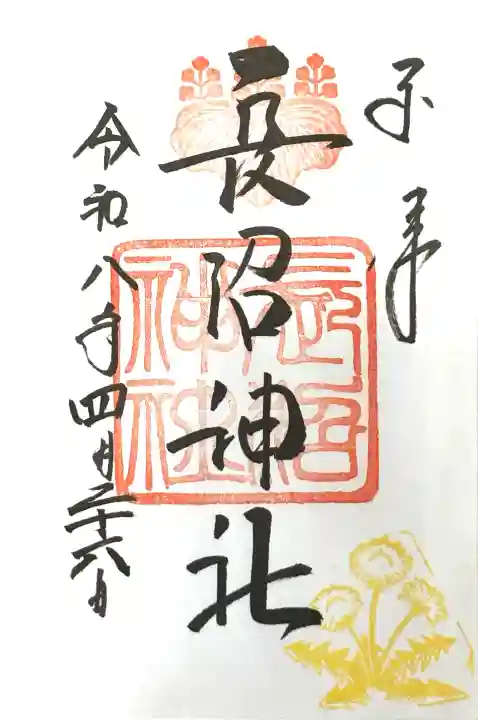 奉拝
長沼神社
長沼神社
令和八年四月二十六日